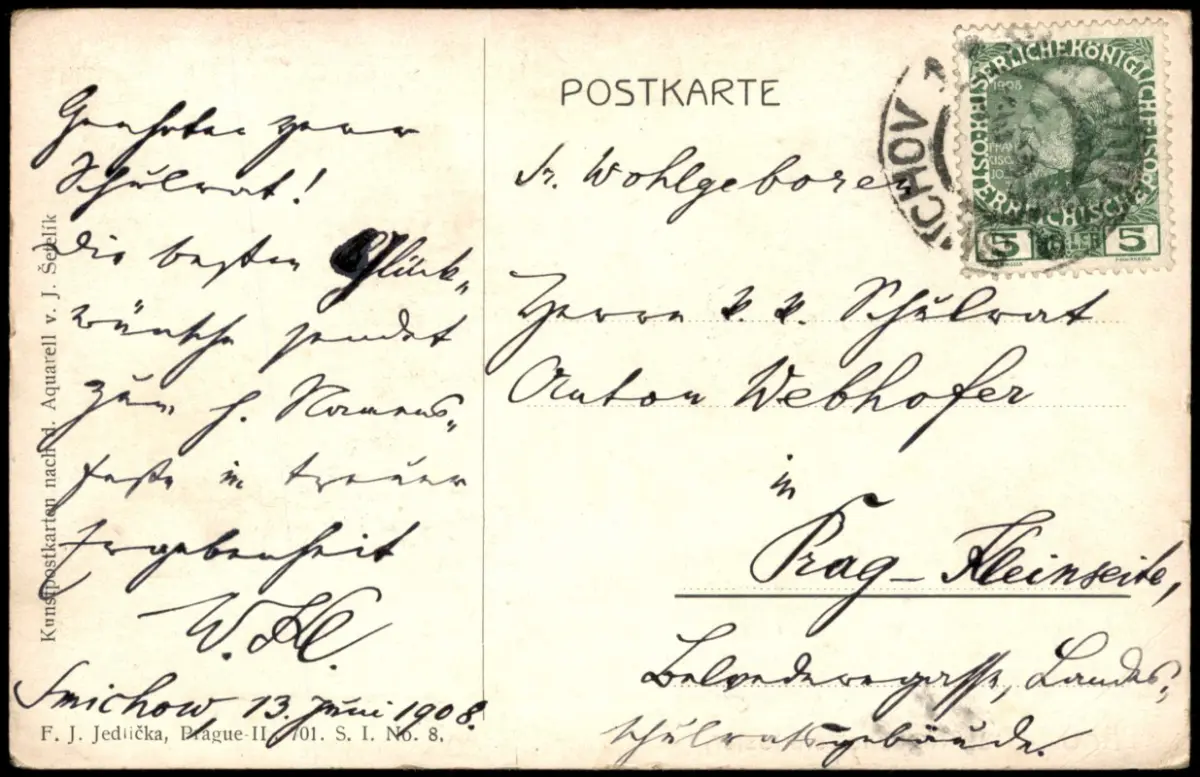 Geehrter Herr
Schulrat!
Die besten Glück-
wünsche sendet
zum h. Namens-
feste in treuer
Ergebenheit
Smichow, 13. Juni 1908.
Kunstpostkarten nach d. Aquarell v. J. Šetelík
F. J. Jedlička, Prague-II. 701. S. I. No. 8.
POSTKARTE
Sr. Wohlgeboren
Herrn k. k. Schulrat
Anton Webhofer
in
Prag - Kleinseite,
Belvederegasse, Landes-
schulratsgebäude.
KAISERLICHE KÖNIGLICHE ÖSTERREICHISCHE POST
1908
5 HELLER 5